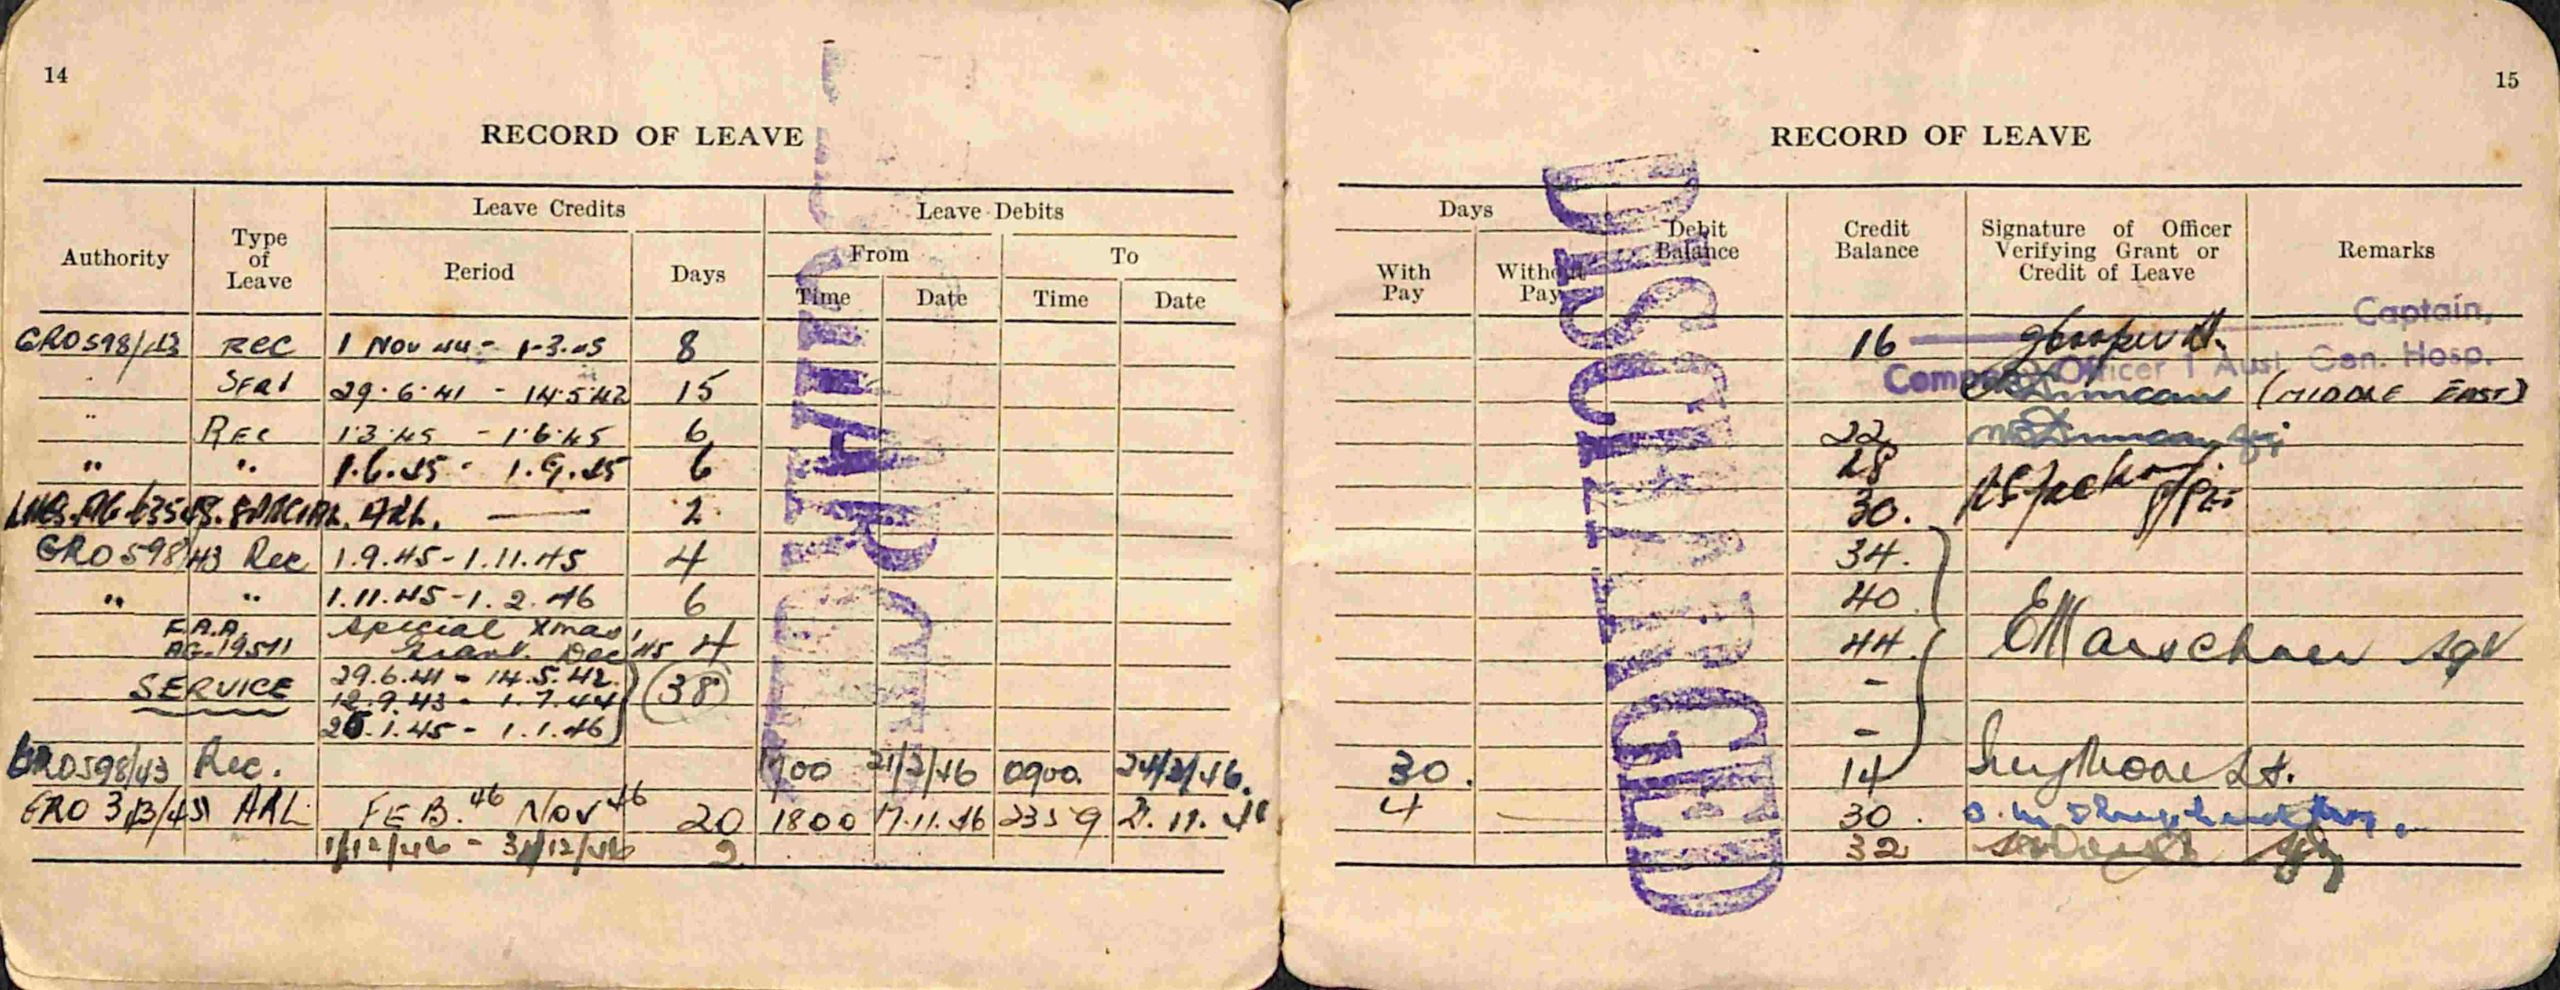 14
RECORD OF LEAVE
Authority
Type of Leave
Leave Credits
Period
Days
Leave Debits
From
To
Time
Date
Time
Date
GRO598/43 REC 1 NOV 44 - 1.3.45 8
29.6.41 - 14.5.42 15
" REC 1.3.45 - 1.6.45 6
" " 1.6.45 - 1.9.45 6
SPECIAL. ARL. — 2
GRO 598/43 Rec 1.9.45 - 1.11.45 4
" " 1.11.45 - 1.2.46 6
AG.19511 Special Xmas Grant. Dec 45 4
SERVICE 29.6.41 - 14.5.42 38
12.9.43 - 1.7.44
1.45 - 1.1.46
GRO598/43 Rec. 0900
ARL FEB. 46 NOV 46 20 1800 17.11.46 2359
1/12/46 - 31/12/46 2
DISCHARGED
15
RECORD OF LEAVE
Days
With Pay
Without Pay
Debit Balance
Credit Balance
Signature of Officer Verifying Grant or Credit of Leave
Remarks
16 Captain,
Company Officer 1 Aust. Gen. Hosp.
(MIDDLE EAST)
22
28
30.
34.
40
44
-
-
30. 14 Lt.
4 — 30.
32
DISCHARGED